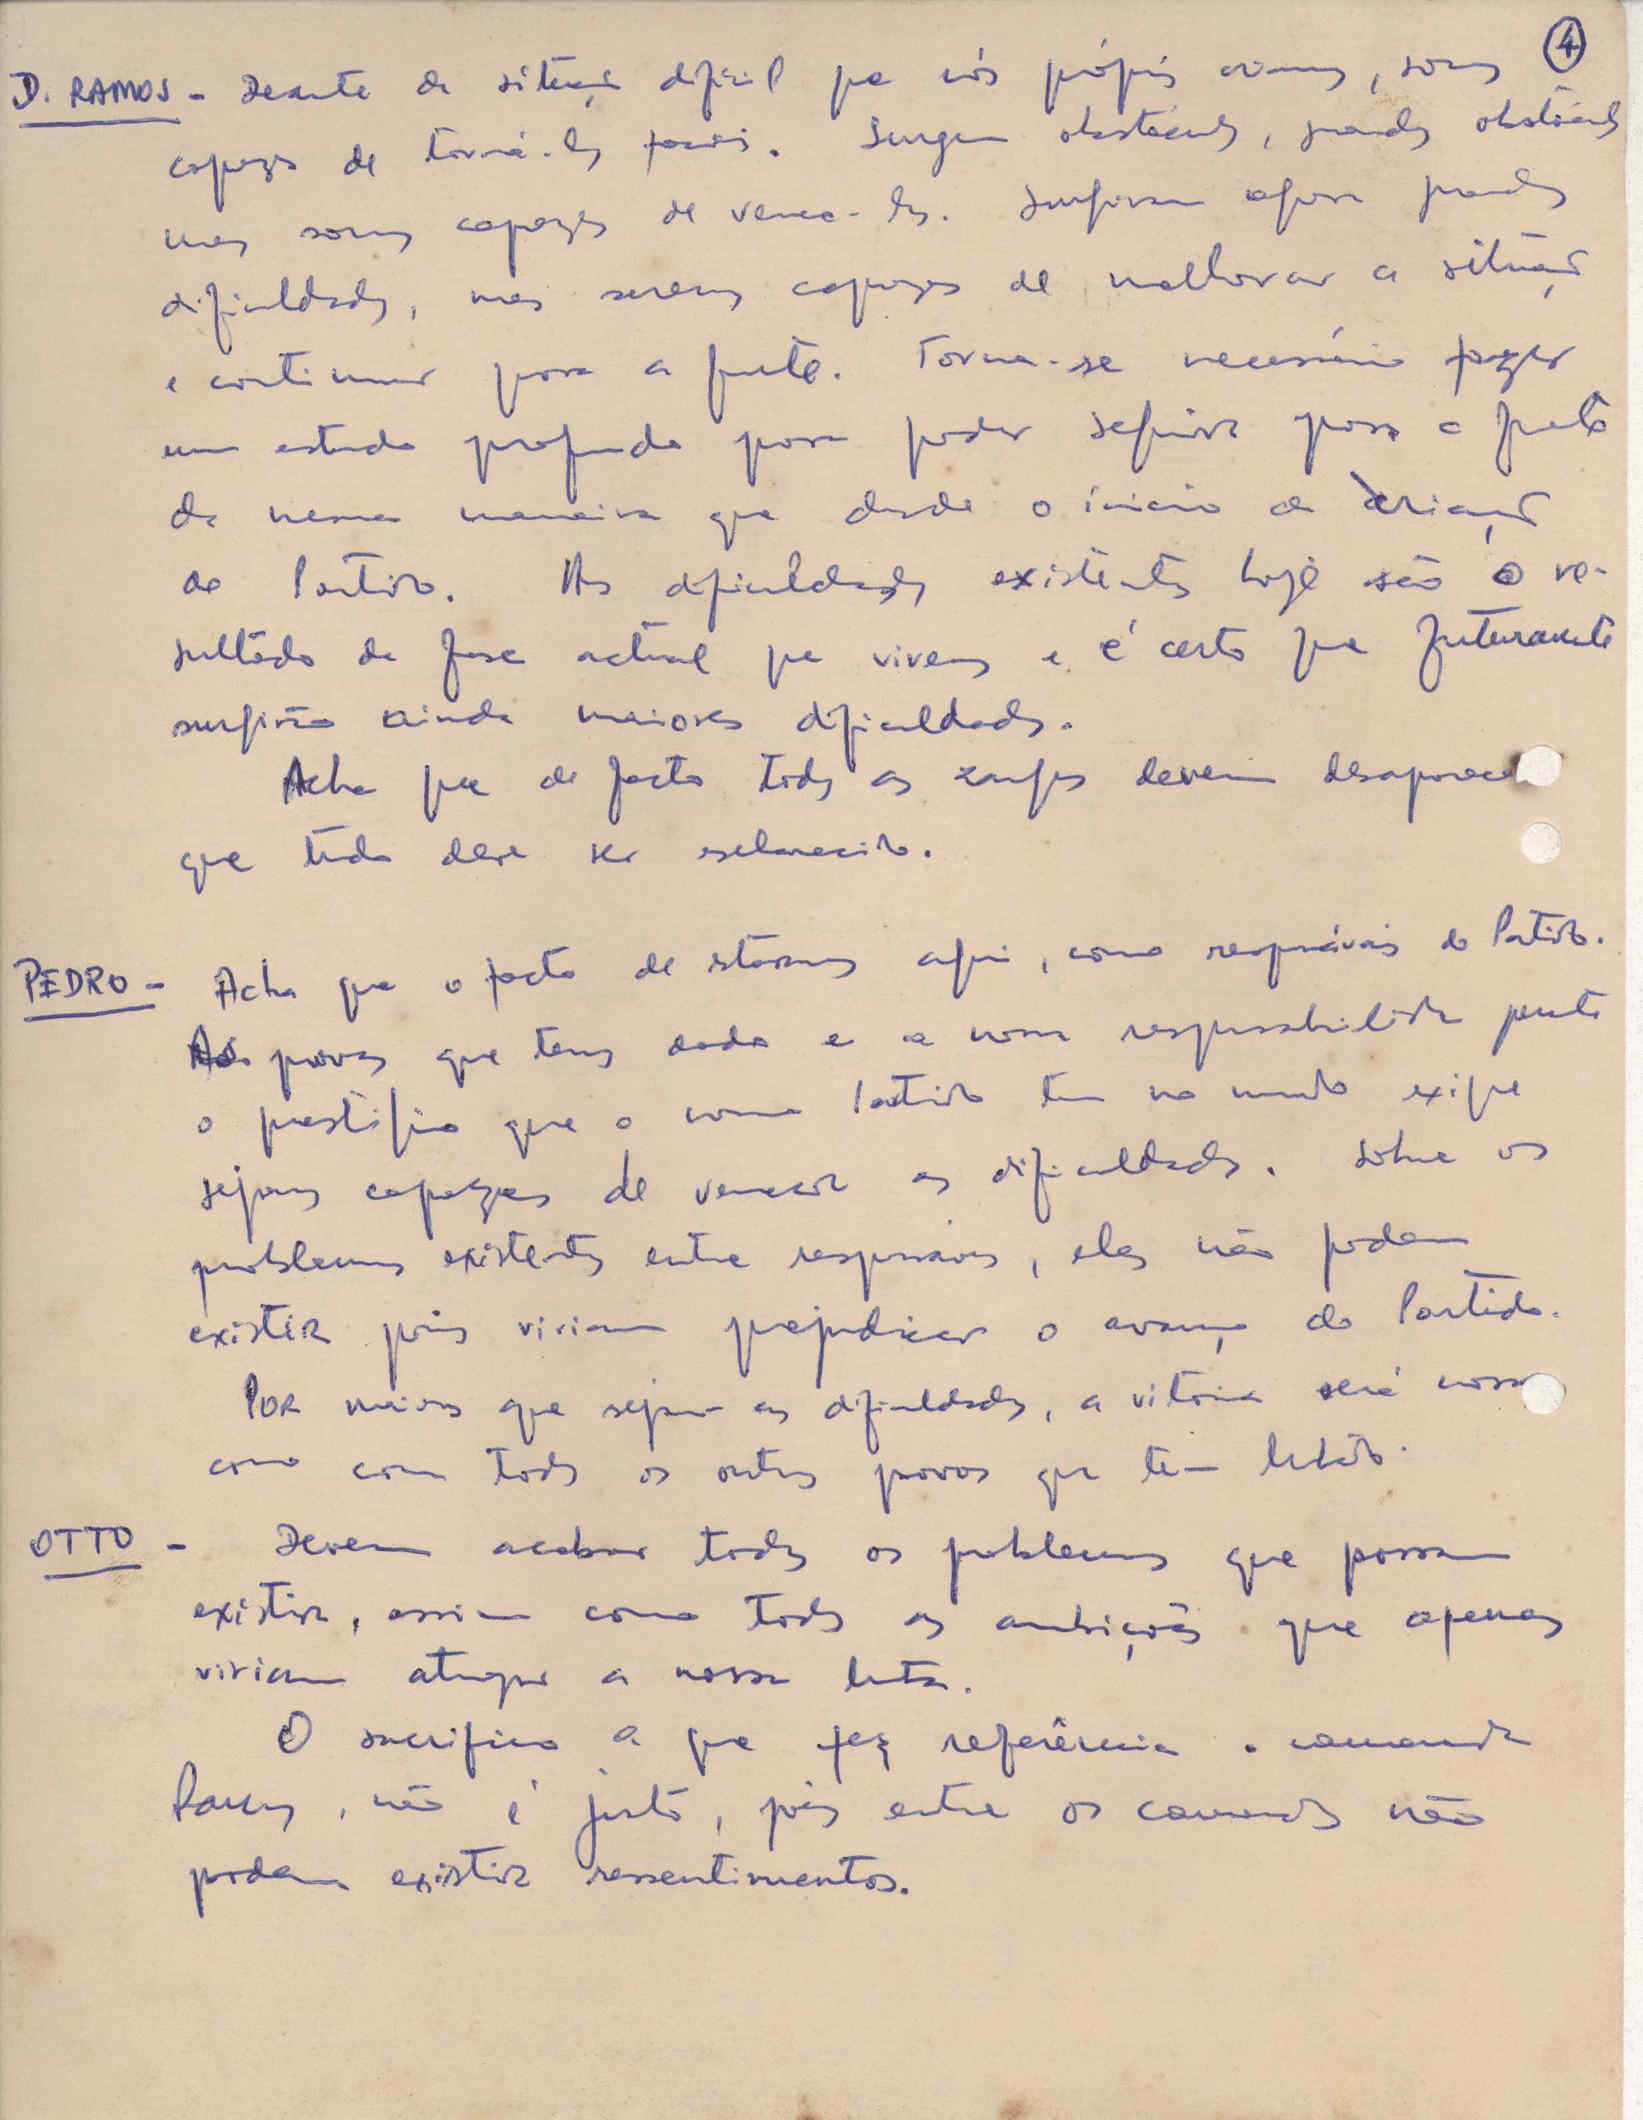 4
D. RAMOS - Deante da situação dificil que nós próprios criamos, somos
capazes de torná-las faceis. Surgem obstáculos, grandes obstáculos
mas somos capazes de vence-los. Surgiram agora grandes
dificuldades, mas seremos capazes de melhorar a situação
e continuar para a frente. Torna-se necessário fazer
um estudo profundo para poder seguir para a frente
da mesma maneira que desde o início da criação
do Partido. As dificuldades existentes hoje são o re-
sultado da fase actual que vivemos e é certo que futuramente
surgirão ainda maiores dificuldades.
Acha que de facto todas as zangas devem desaparecer
que tudo deve ser esclarecido.
PEDRO - Acha que o facto de estarmos aqui, como responsáveis do Partido.
As provas que temos dado e a nossa responsabilidade perante
o prestígio que o nosso Partido tem no mundo exige
sejamos capazes de vencer as dificuldades. Sobre os
problemas existentes entre responsáveis, eles não podem
existir pois viriam prejudicar o avanço do Partido.
Por maiores que sejam as dificuldades, a vitória será nossa
como com todos os outros povos que têm lutado.
OTTO - Devem acabar todos os problemas que possam
existir, assim como todas as ambições que apenas
viriam atrazar a nossa luta.
O sacrifício a que fez referência o camarada
, não é justo, pois entre os camaradas não
podem existir ressentimentos.